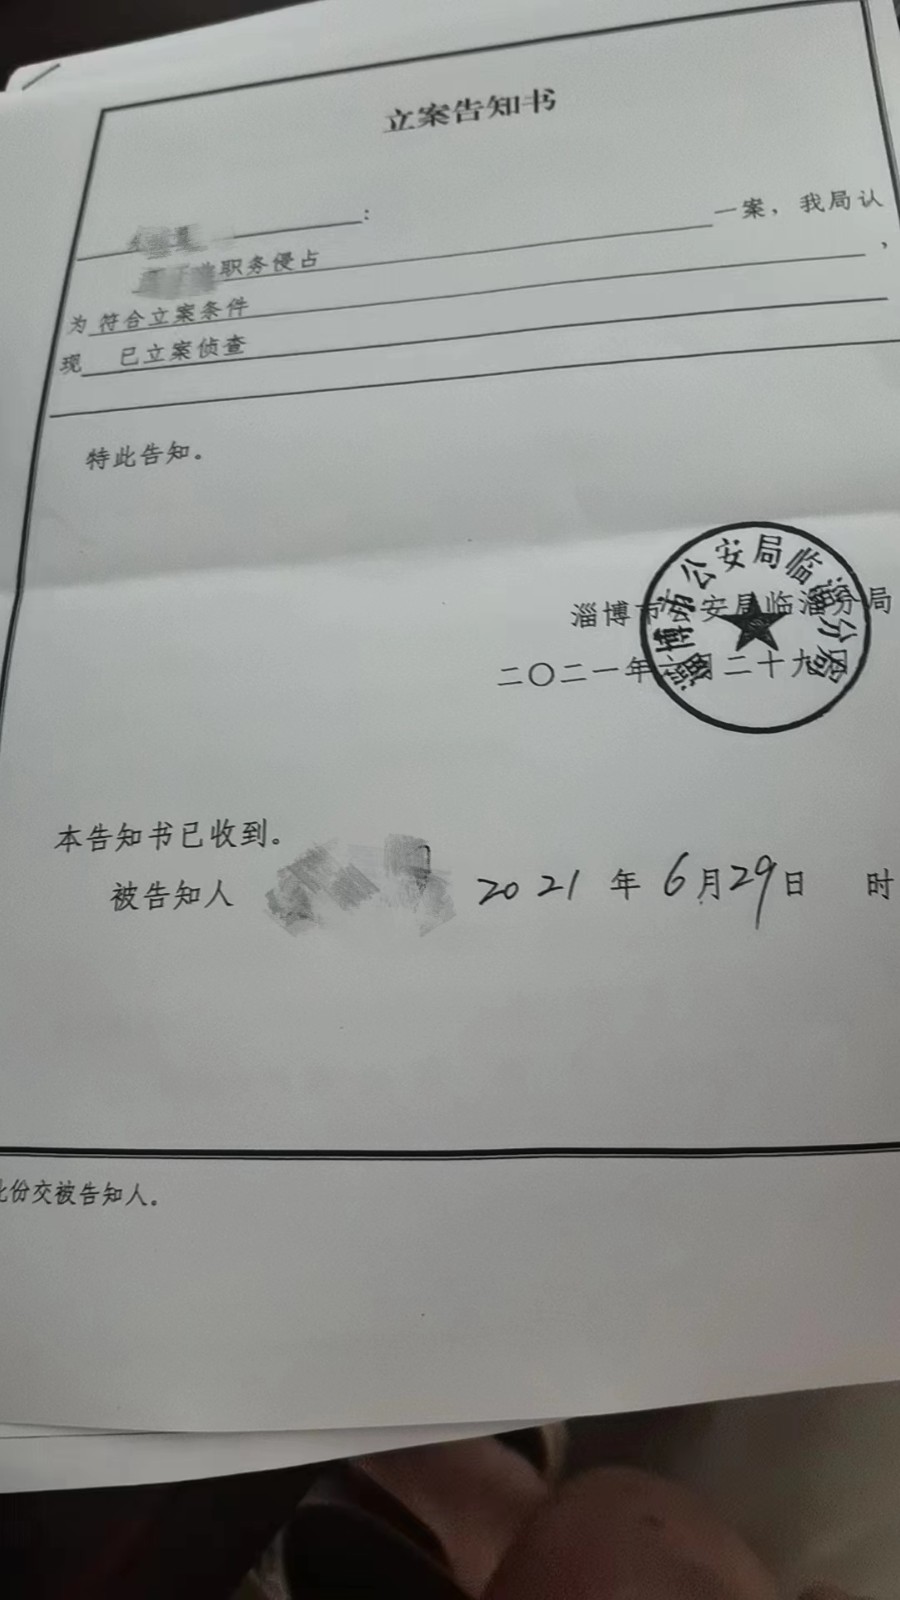 立案告知书
：
职务侵占
一案，我局认
为 符合立案条件，
现 已立案侦查
特此告知。
淄博市公安局临淄分局
淄博市公安局临淄分局
二〇二一年六月二十九日
本告知书已收到。
被告知人 2021 年 6月29日 时
此份交被告知人。